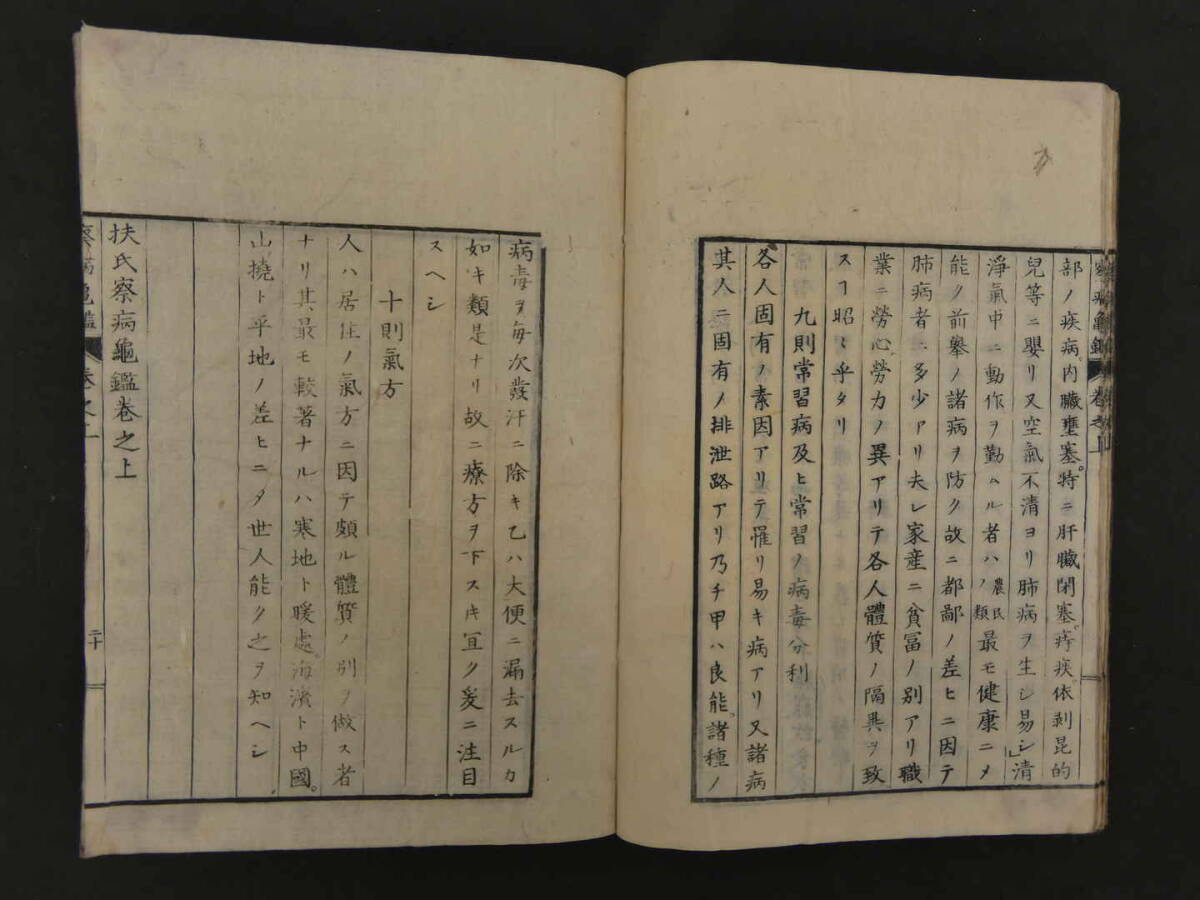 部ノ疾病、内臟壅塞。特ニ肝臟閉塞、痔疾、依剥昆的
兒等ニ嬰リ又空氣不清ヨリ肺病ヲ生シ易シ」清
淨氣中ニ動作ヲ勤ムル者ハ農民ノ類最モ健康ニメ
能ク前擧ノ諸病ヲ防ク故ニ都鄙ノ差ヒニ因テ
肺病者ニ多少アリ夫レ家産ニ貧冨ノ別アリ職
業ニ勞心勞力ノ異アリテ各人體質ノ隔異ヲ致
スヿ昭〻乎タリ
九則常習病及ヒ常習ノ病毒分利
各人固有ノ素因アリテ罹リ易キ病アリ又諸病
其人ニ固有ノ排泄路アリ乃チ甲ハ良能。諸種ノ
病毒ヲ每次發汗ニ除キ乙ハ大便ニ漏去スルカ
如キ類是ナリ故ニ療方ヲ下スキ宜ク爰ニ注目
スヘシ
十則氣方
人ハ居住ノ氣方ニ因テ頗ル體質ノ別ヲ做ス者
ナリ其最モ較著ナルハ寒地ト暖處、海濱ト中國。
山撓ト平地ノ差ヒニメ世人能ク之ヲ知ヘシ
扶氏察病龜鑑卷之上
察病龜鑑 卷之上 二十
察病龜鑑 卷之上